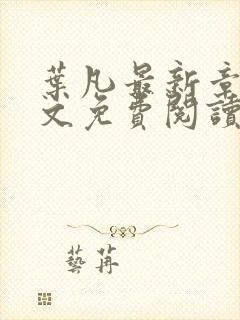 葉凡最新章
文免費閱讀
藝苒